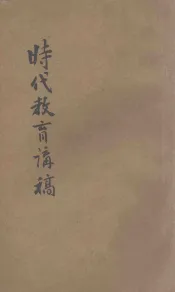 時代教育講稿